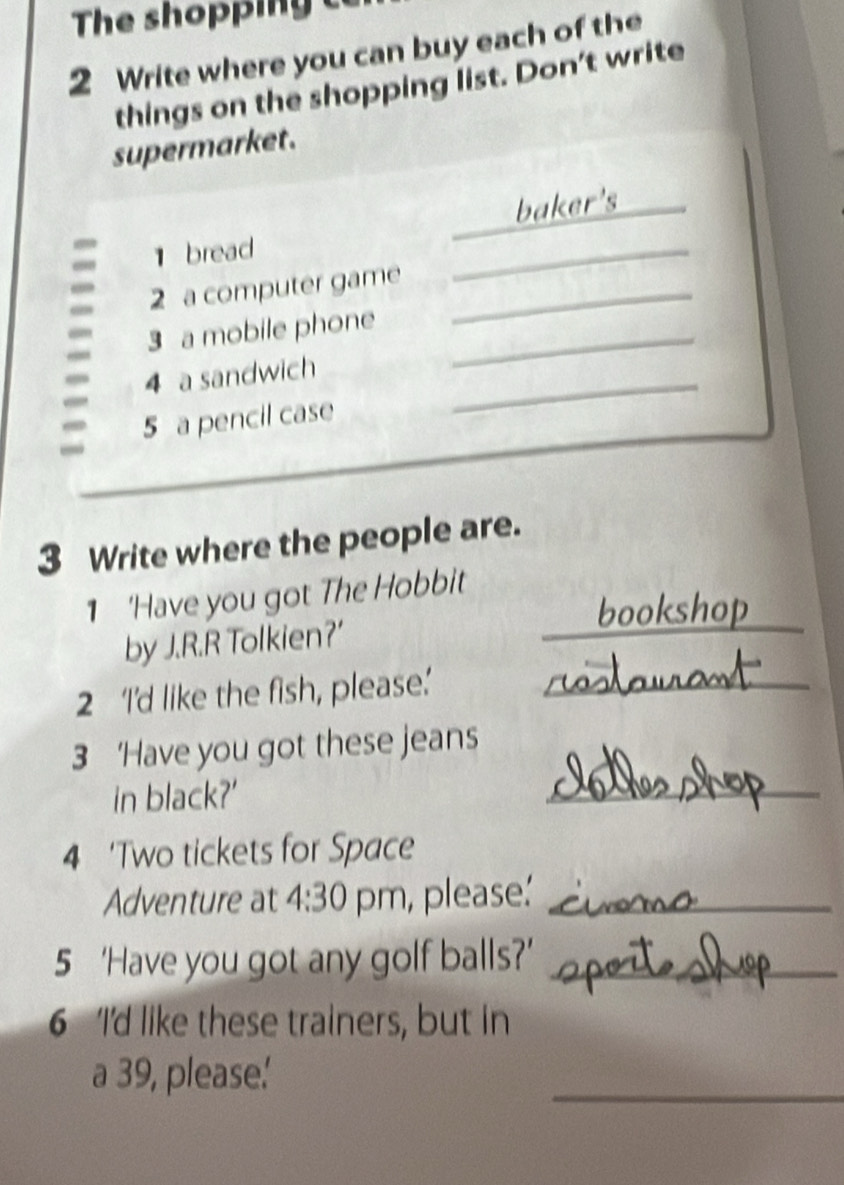 The shopping
2 Write where you can buy each of the
things on the shopping list. Don't write
supermarket.
1 bread baker's
2 a computer game
3 a mobile phone
4 a sandwich
5 a pencil case
3 Write where the people are.
1 'Have you got The Hobbit
by J.R.R Tolkien?' bookshop
2 'I'd like the fish, please.' restaurant
3 'Have you got these jeans
in black?' clothes shop
4 'Two tickets for Space
Adventure at 4:30 pm, please.' cinema
5 'Have you got any golf balls?' sports shop
6 'I'd like these trainers, but in
a 39, please.'